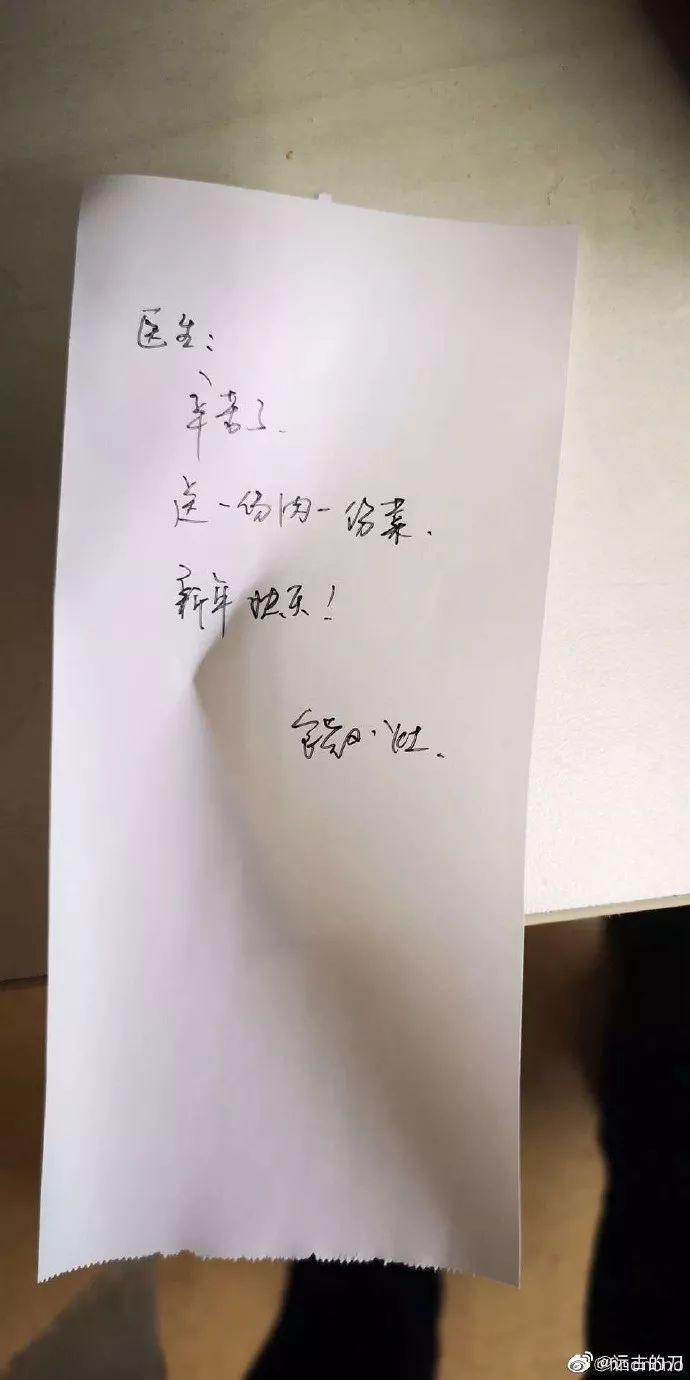 医生：
辛苦了.
送一份肉一份菜.
新年快乐！
小灶.
@远古的刀